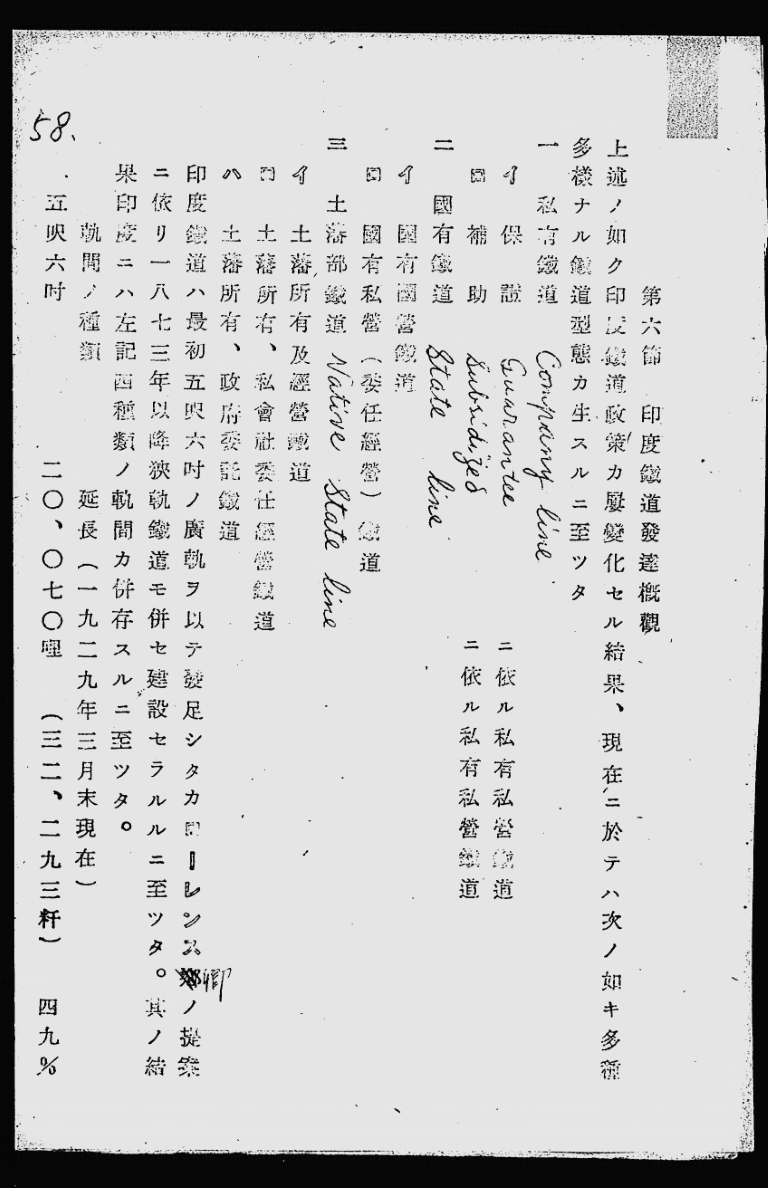 58.
第六節　印度鐵道發達槪觀
上述ノ如ク印度鐵道政策カ屢變化セル結果、現在ニ於テハ次ノ如キ多種
多樣ナル鐵道型態カ生スルニ至ツタ
一　私有鐵道 Company line
イ　保證 Guarantee ニ依ル私有私營鐵道
ロ　補助 Subsidized ニ依ル私有私營鐵道
二　國有鐵道 State line
イ　國有國營鐵道
ロ　國有私營（委任經營）鐵道
三　土藩部鐵道 Native State line
イ　土藩所有及經營鐵道
ロ　土藩所有、私會社委任經營鐵道
ハ　土藩所有、政府委託鐵道
印度鐵道ハ最初五呎六吋ノ廣軌ヲ以テ發足シタカローレンス卿ノ提案
ニ依リ一八七三年以降狹軌鐵道モ併セ建設セラルルニ至ツタ。其ノ結
果印度ニハ左記四種類ノ軌間カ併存スルニ至ツタ。
軌間ノ種類　延長（一九二九年三月末現在）
五呎六吋　二〇、〇七〇哩　（三二、二九三粁）　四九%